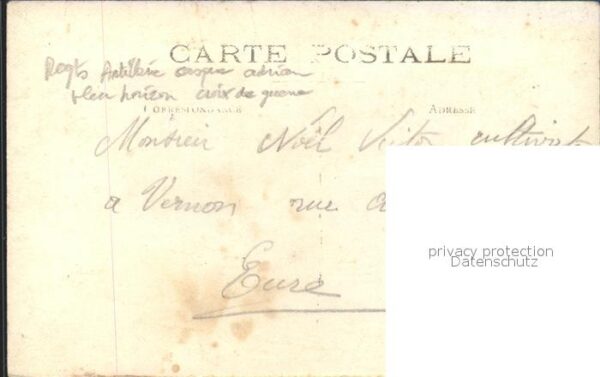 CARTE POSTALE
Regts Artillerie casque adrian
bleu horizon croix de guerre
CORRESPONDANCE ADRESSE
Monsieur Noël cultivat
a Vernon rue
privacy protection
Datenschutz
Eure